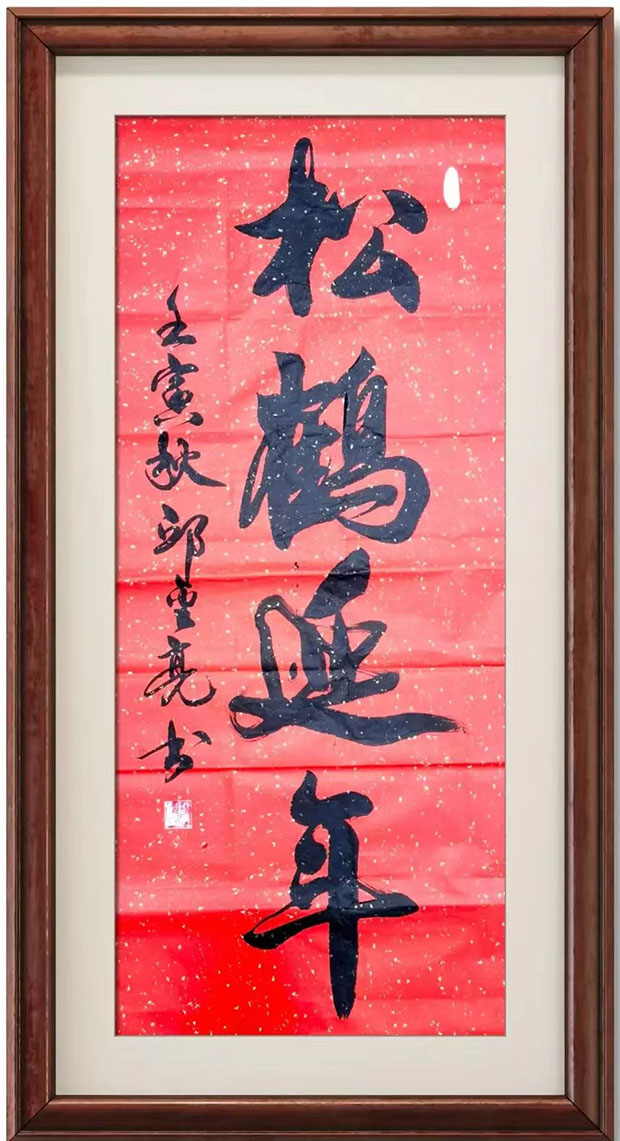 松鹤延年
壬寅秋邱重亮书